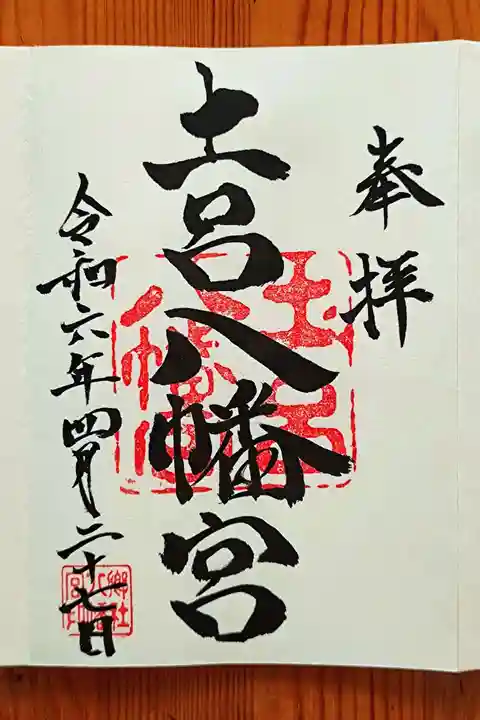 奉拝
土呂八幡宮
令和六年四月二十七日
土呂
八幡宮
郷社
八幡
宮印